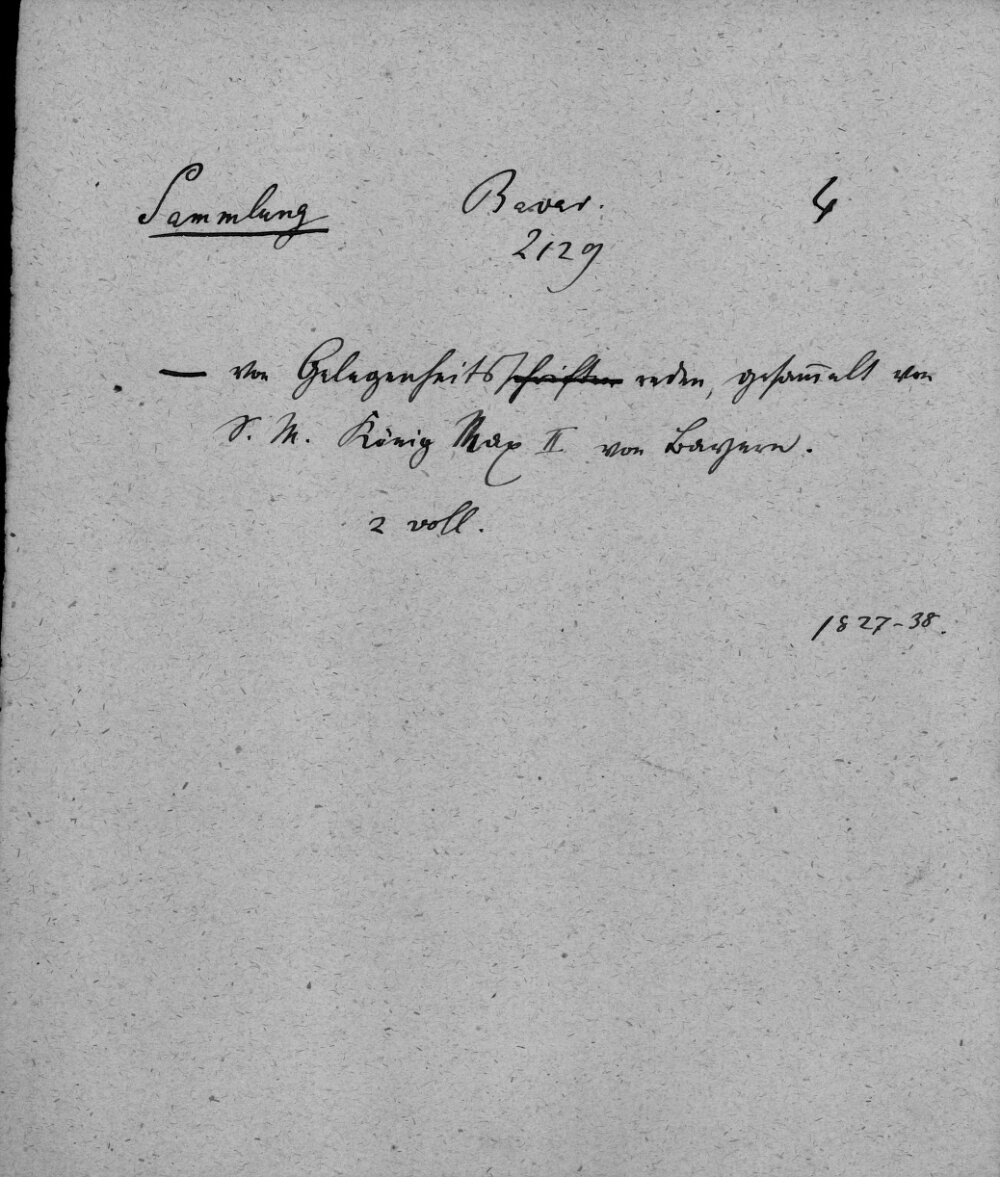 Sammlung Bavar. 4
2129
— von Gelegenheitsschriften reden, gesam̅elt von
S. M. König Max II von Bayern.
2 voll.
1827-38.